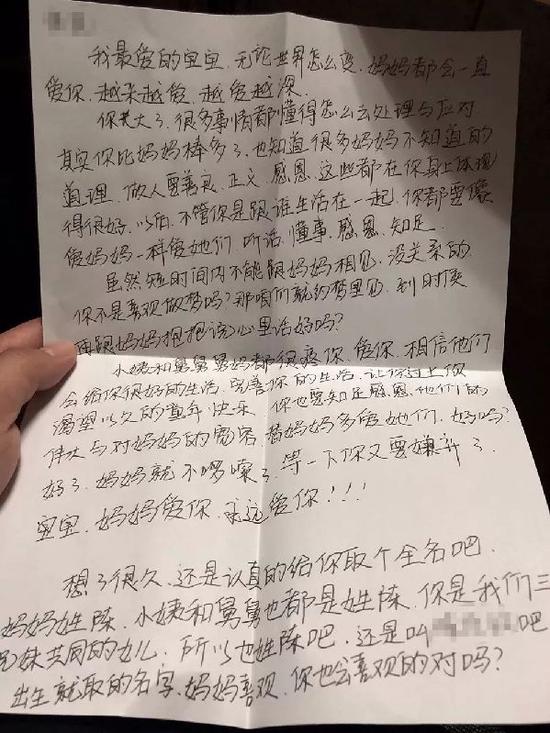 我最爱的宝宝、无论世界怎么变、妈妈都会一直
爱你、越来越爱、越爱越深。
你长大了、很多事情都懂得怎么去处理与应对
其实你比妈妈棒多了、也知道很多妈妈不知道的
道理、做人要善良、正义、感恩、这些都在你身上体现
得很好、以后、不管你是跟谁生活在一起、你都要像
爱妈妈一样爱她们、听话、懂事、感恩、知足、
虽然短时间内不能跟妈妈相见、没关系的
你不是喜欢做梦吗?那咱们就约梦里见、到时候
再跟妈妈抱抱说心里话好吗?
小姨和舅舅舅妈都很疼你、爱你、相信他们
会给你很好的生活、完善你的生活、让你过上你
渴望以久的童年快乐、你也要知足感恩、他们的
伟大与对妈妈的宽容、替妈妈多爱她们、好吗?
好了、妈妈就不啰嗦了、等一下你又要嫌弃了、
宝宝、妈妈爱你、永远爱你!!!
想了很久、还是认真的给你取个全名吧、
妈妈姓陈、小姨和舅舅也都是姓陈、你是我们三
兄妹共同的女儿、所以也姓陈吧、还是叫 吧
出生就取的名字、妈妈喜欢、你也会喜欢的对吗?